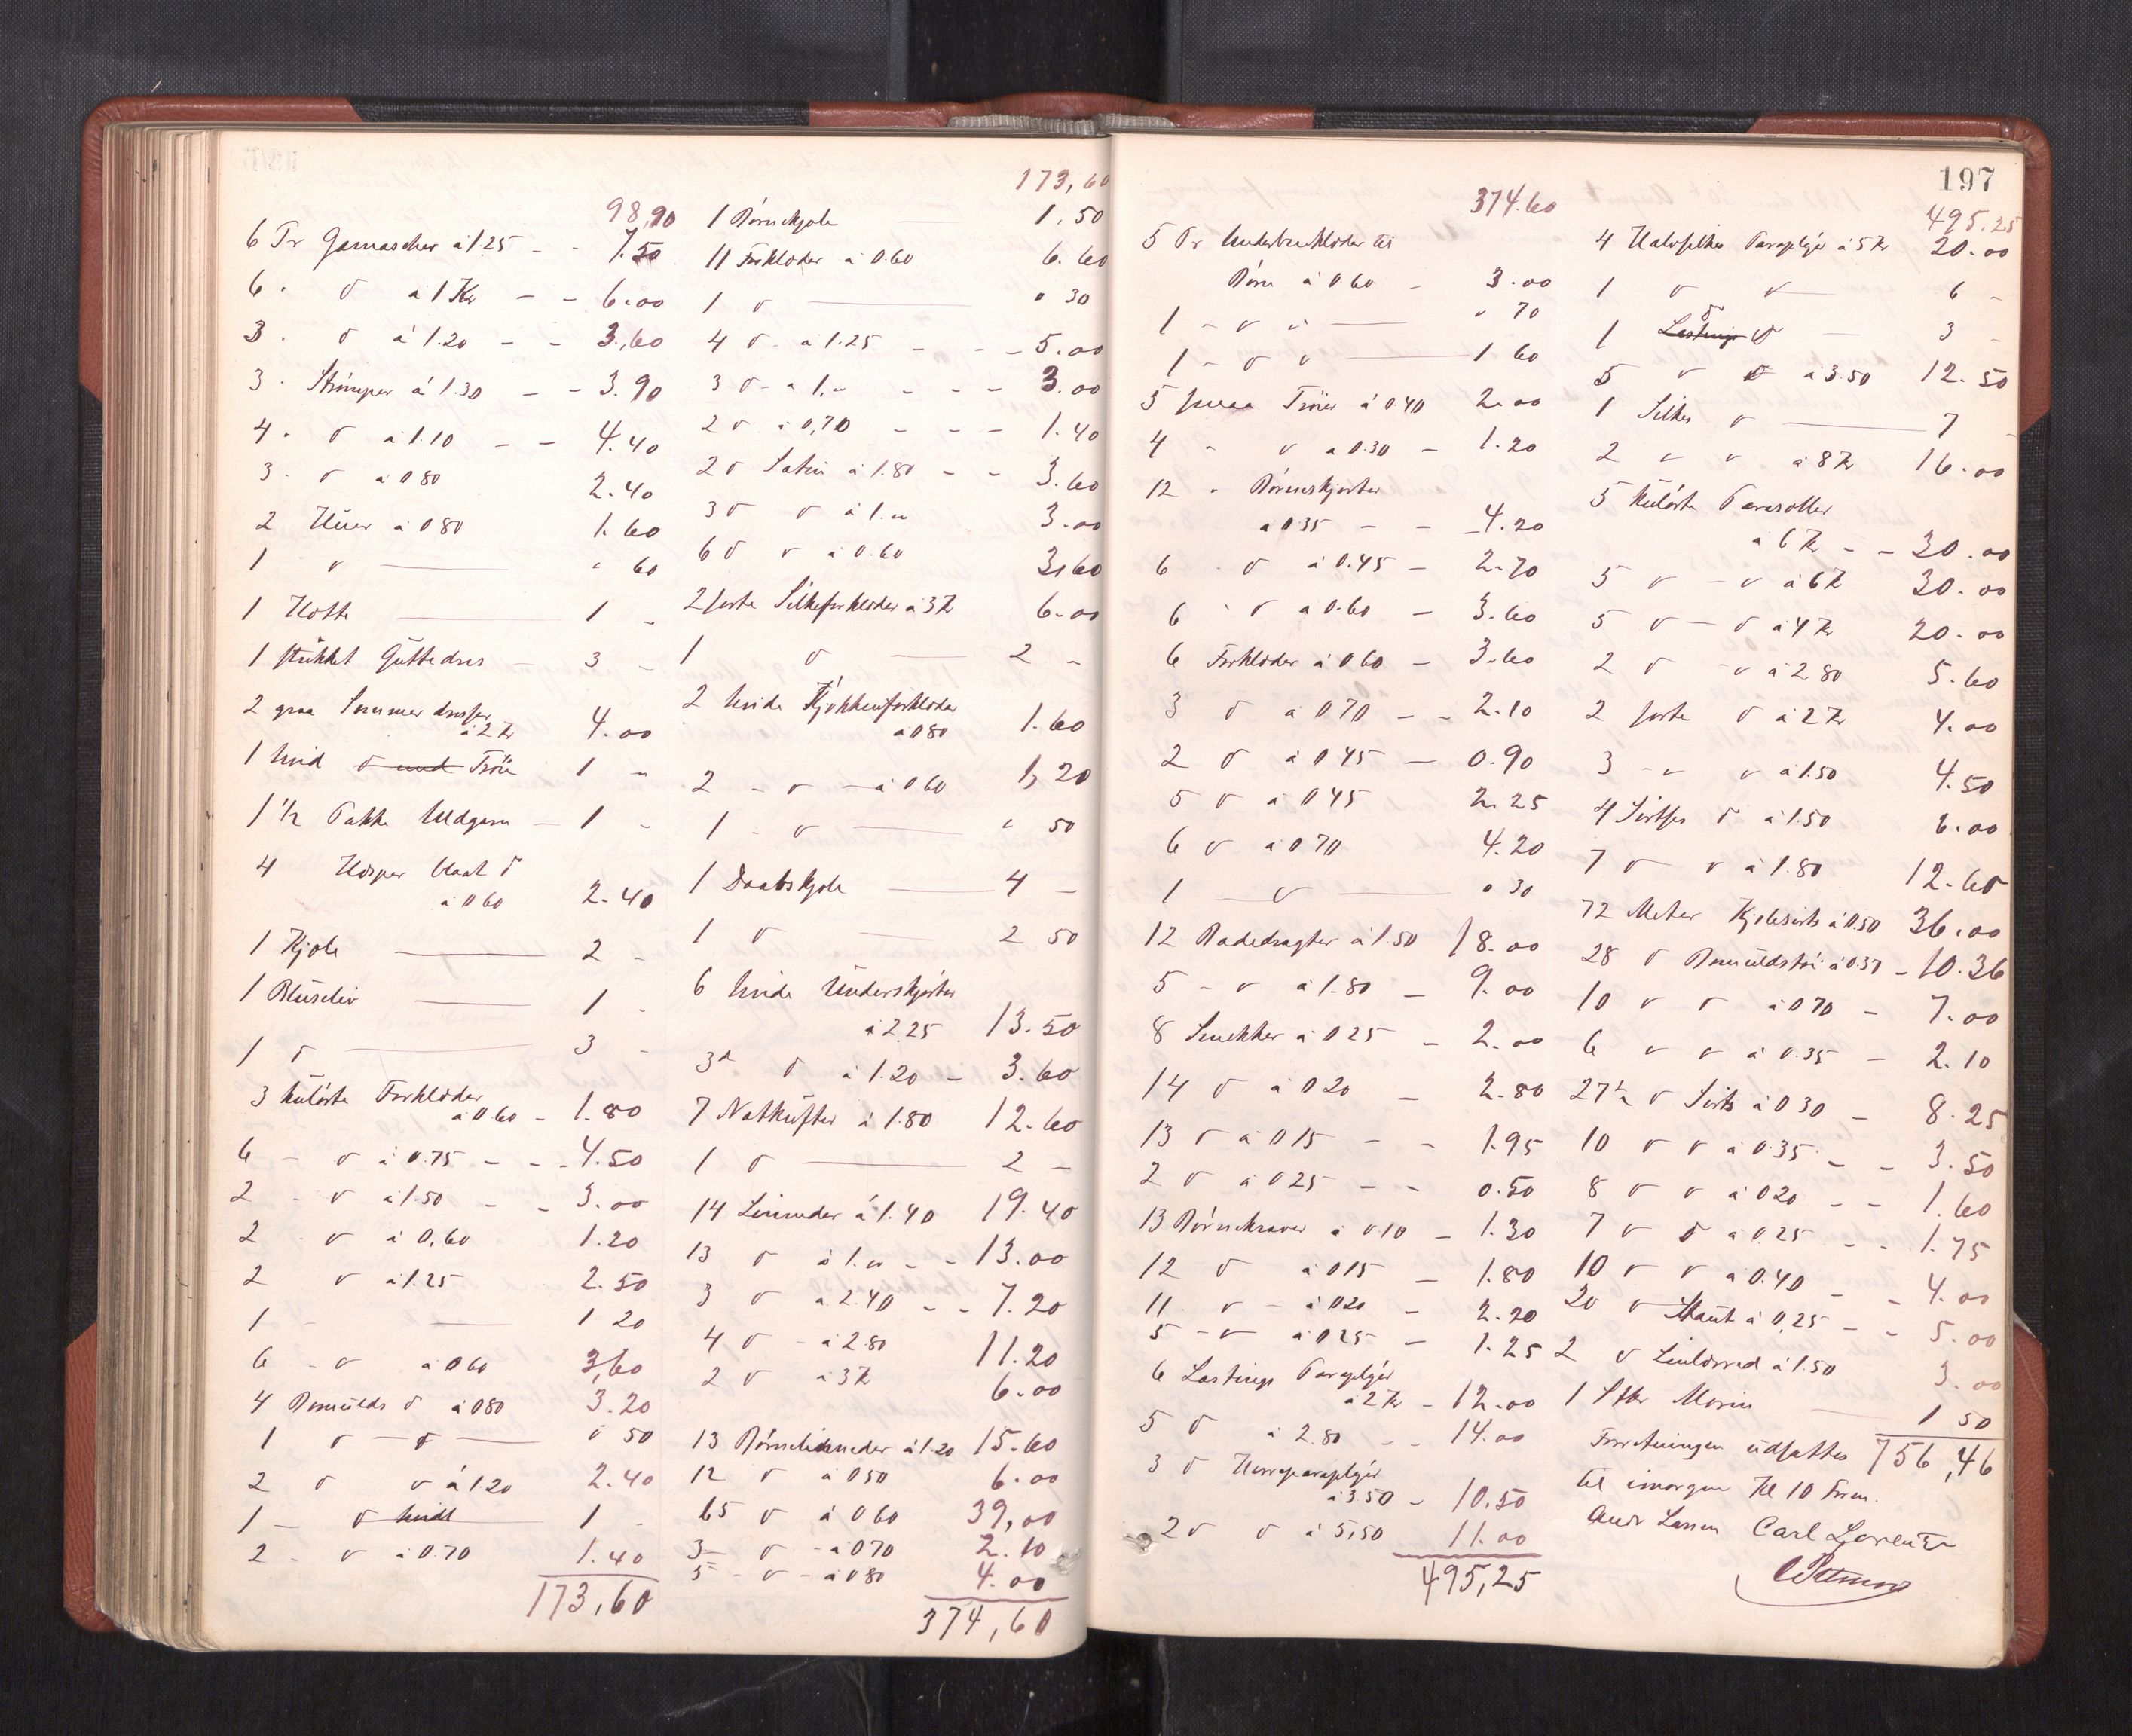 98,90
6 Pr Gamascher à 1.25 - - 7.50
6 . do à 1 Kr - - 6.00
3 . do à 1.20 - - 3.60
3 . Strömper à 1.30 - - 3.90
4 . do à 1.10 - - 4.40
3 . do à 0 80 2.40
2 Huer à 0 80 1.60
1 do " 60
1 Hætte 1 -
1 strikket Guttedres - 3 -
2 graa Sommerdresser
à 2 Kr 4.00
1 hvid Tröie 1 "
1 1/2 Pakke Uldgarn - 1 -
4 Hesper blaat do
à 0 60 2.40
1 Kjole 2 -
1 Bluseliv 1 -
1 do 3 -
3 kulörte Forklæder
à 0.60 - 1.80
6 - do à 0.75 - - - 4.50
2 - do à 1.50 - - 3.00
2 - do à 0.60 1.20
2 do à 1.25 2.50
1 - 1 20
6 - do à 0 60 3,60
4 Bomulds do à 0 80 3.20
1 do - do " 50
2 do do à 1.20 2.40
1 - do hvidt 1 -
2 - do à 0.70 1.40
173,60
173,60
1 Börnekjole 1.50
11 Forklæder à 0.60 6.60
1 do " 30
4 do - à 1.25 - - - 5.00
3 do - à 1." - - - 3.00
2 do à 0,70 - - - 1.40
2 do Satin à 1.80 - - 3.60
3 do do à 1." 3.00
6 do do à 0.60 3,60
2 sorte Silkeforklæder à 3 Kr 6.00
1 do 2 -
2 hvide Kjökkenforklæder
à 0 80 1.60
2 - do - à 0 60 1,20
1 - do " 50
1 Daabskjole 4 -
1 do 2 50
6 hvide Underskjörter
à 2.25 13.50
3 do à 1.20 - 3.60
7 Natköfter à 1.80 12.60
1 do 2 -
14 Linneder à 1.40 19.40
13 do à 1." - - 13.00
3 do à 2.40 - - 7.20
4 do - à 2.80 11.20
2 do à 3 Kr 6.00
13 Börnelinneder à 1.20 15.60
12 do à 0 50 6.00
65 do à 0 60 39,00
3 - do - à 0 70 2.10
5 - do - à 0 80 4.00
374,60
374.60
5 Pr Underbenklæder til
Börn à 0.60 - 3.00
1 - do do " 70
1 - do do 1 60
5 smaa Tröier à 0.40 2.00
4 - do à 0.30 - 1.20
12 - Börneskjorter
à 0 35 - - 4.20
6 - do à 0.45 - 2.70
6 - do à 0.60 - 3.60
6 Forklæder à 0 60 - 3.60
3 do à 0 70 - - 2.10
2 do à 0 45 - 0.90
5 do à 0 45 2.25
6 do à 0 70 4.20
1 - do " 30
12 Badedragter à 1.50 18.00
5 - do à 1.80 - 9.00
8 Smekker à 0 25 - 2.00
14 do à 0 20 - 2.80
13 do à 0 15 - - 1.95
2 do à 0 25 - - 0.50
13 Börnekraver à 0 10 - 1.30
12 do à 0 15 - 1.80
11 do - à 0 20 - 2.20
5 - do à 0 25 - 1.25
6 Lastings Paraplyer
à 2 Kr - 12.00
5 do à 2.80 - - 14.00
3 do Herreparaplyer
à 3.50 - 10.50
2 do do à 5,50 11.00
495,25
197
495.25
4 Halvsilkes Paraplyer à 5 Kr 20.00
1 do do 6 -
1 Lastings do 3 -
5 do do à 3.50 12.50
1 Silkes do 7 -
2 do do à 8 Kr 16.00
5 kulörte Parasoller
à 6 Kr - - 30.00
5 do - do à 6 Kr 30.00
5 do - do à 4 Kr 20.00
2 do - do à 2 80 5.60
2 sorte do à 2 Kr 4.00
3 - do do à 1.50 4.50
4 Sirtses do à 1.50 6.00
7 do do à 1.80 12.60
72 Meter Kjolesirts à 0.50 36.00
28 do Bomuldstöi à 0.37 - 10.36
10 do do à 0 70 - 7.00
6 do do à 0.35 - 2.10
27 1/2 do Sirts à 0 30 - 8.25
10 do do à 0.35 - - 3.50
8 do do à 0 20 - - 1.60
7 do do à 0.25 - - 1.75
10 do do à 0.40 - - 4.00
20 do Skaut à 0,25 - - 5.00
2 do Linlærred à 1.50 3.00
1 Stkr Morin 1 50
Forretningen udsattes 756,46
til imorgen Kl 10 Form.
Andr Larsen Carl Lorentz